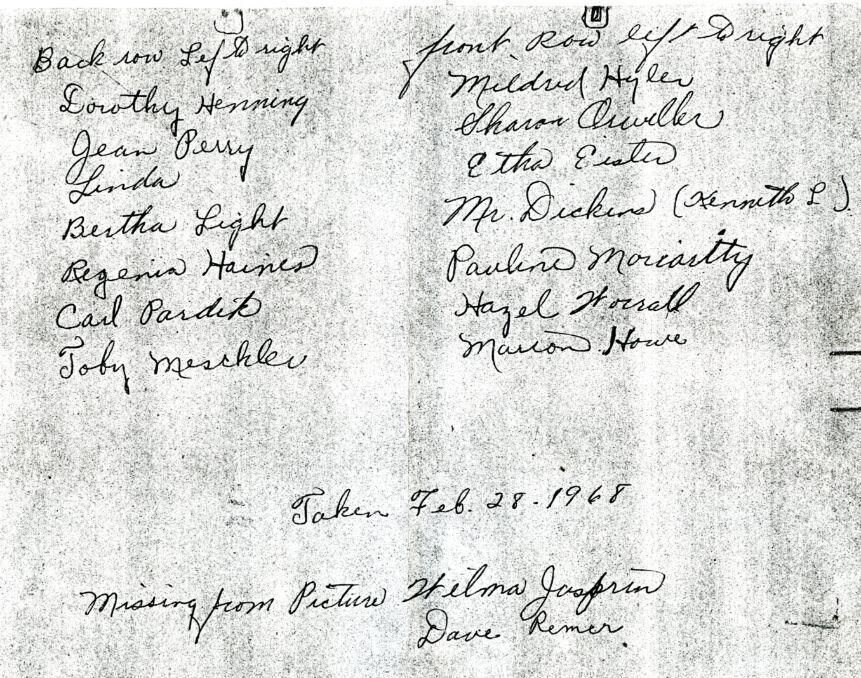 Back row Left to right
Dorothy Henning
Jean Perry
Linda
Bertha Light
Regenia Haines
Carl Pardek
Toby Meschler
front Row left to right
Mildred Hyler
Sharon
Etha Eister
Mr. Dickens (Kenneth L)
Pauline Moriartty
Hazel Worrall
Marion Howe
Taken Feb. 28-1968
Missing from Picture Wilma
Dave Remer